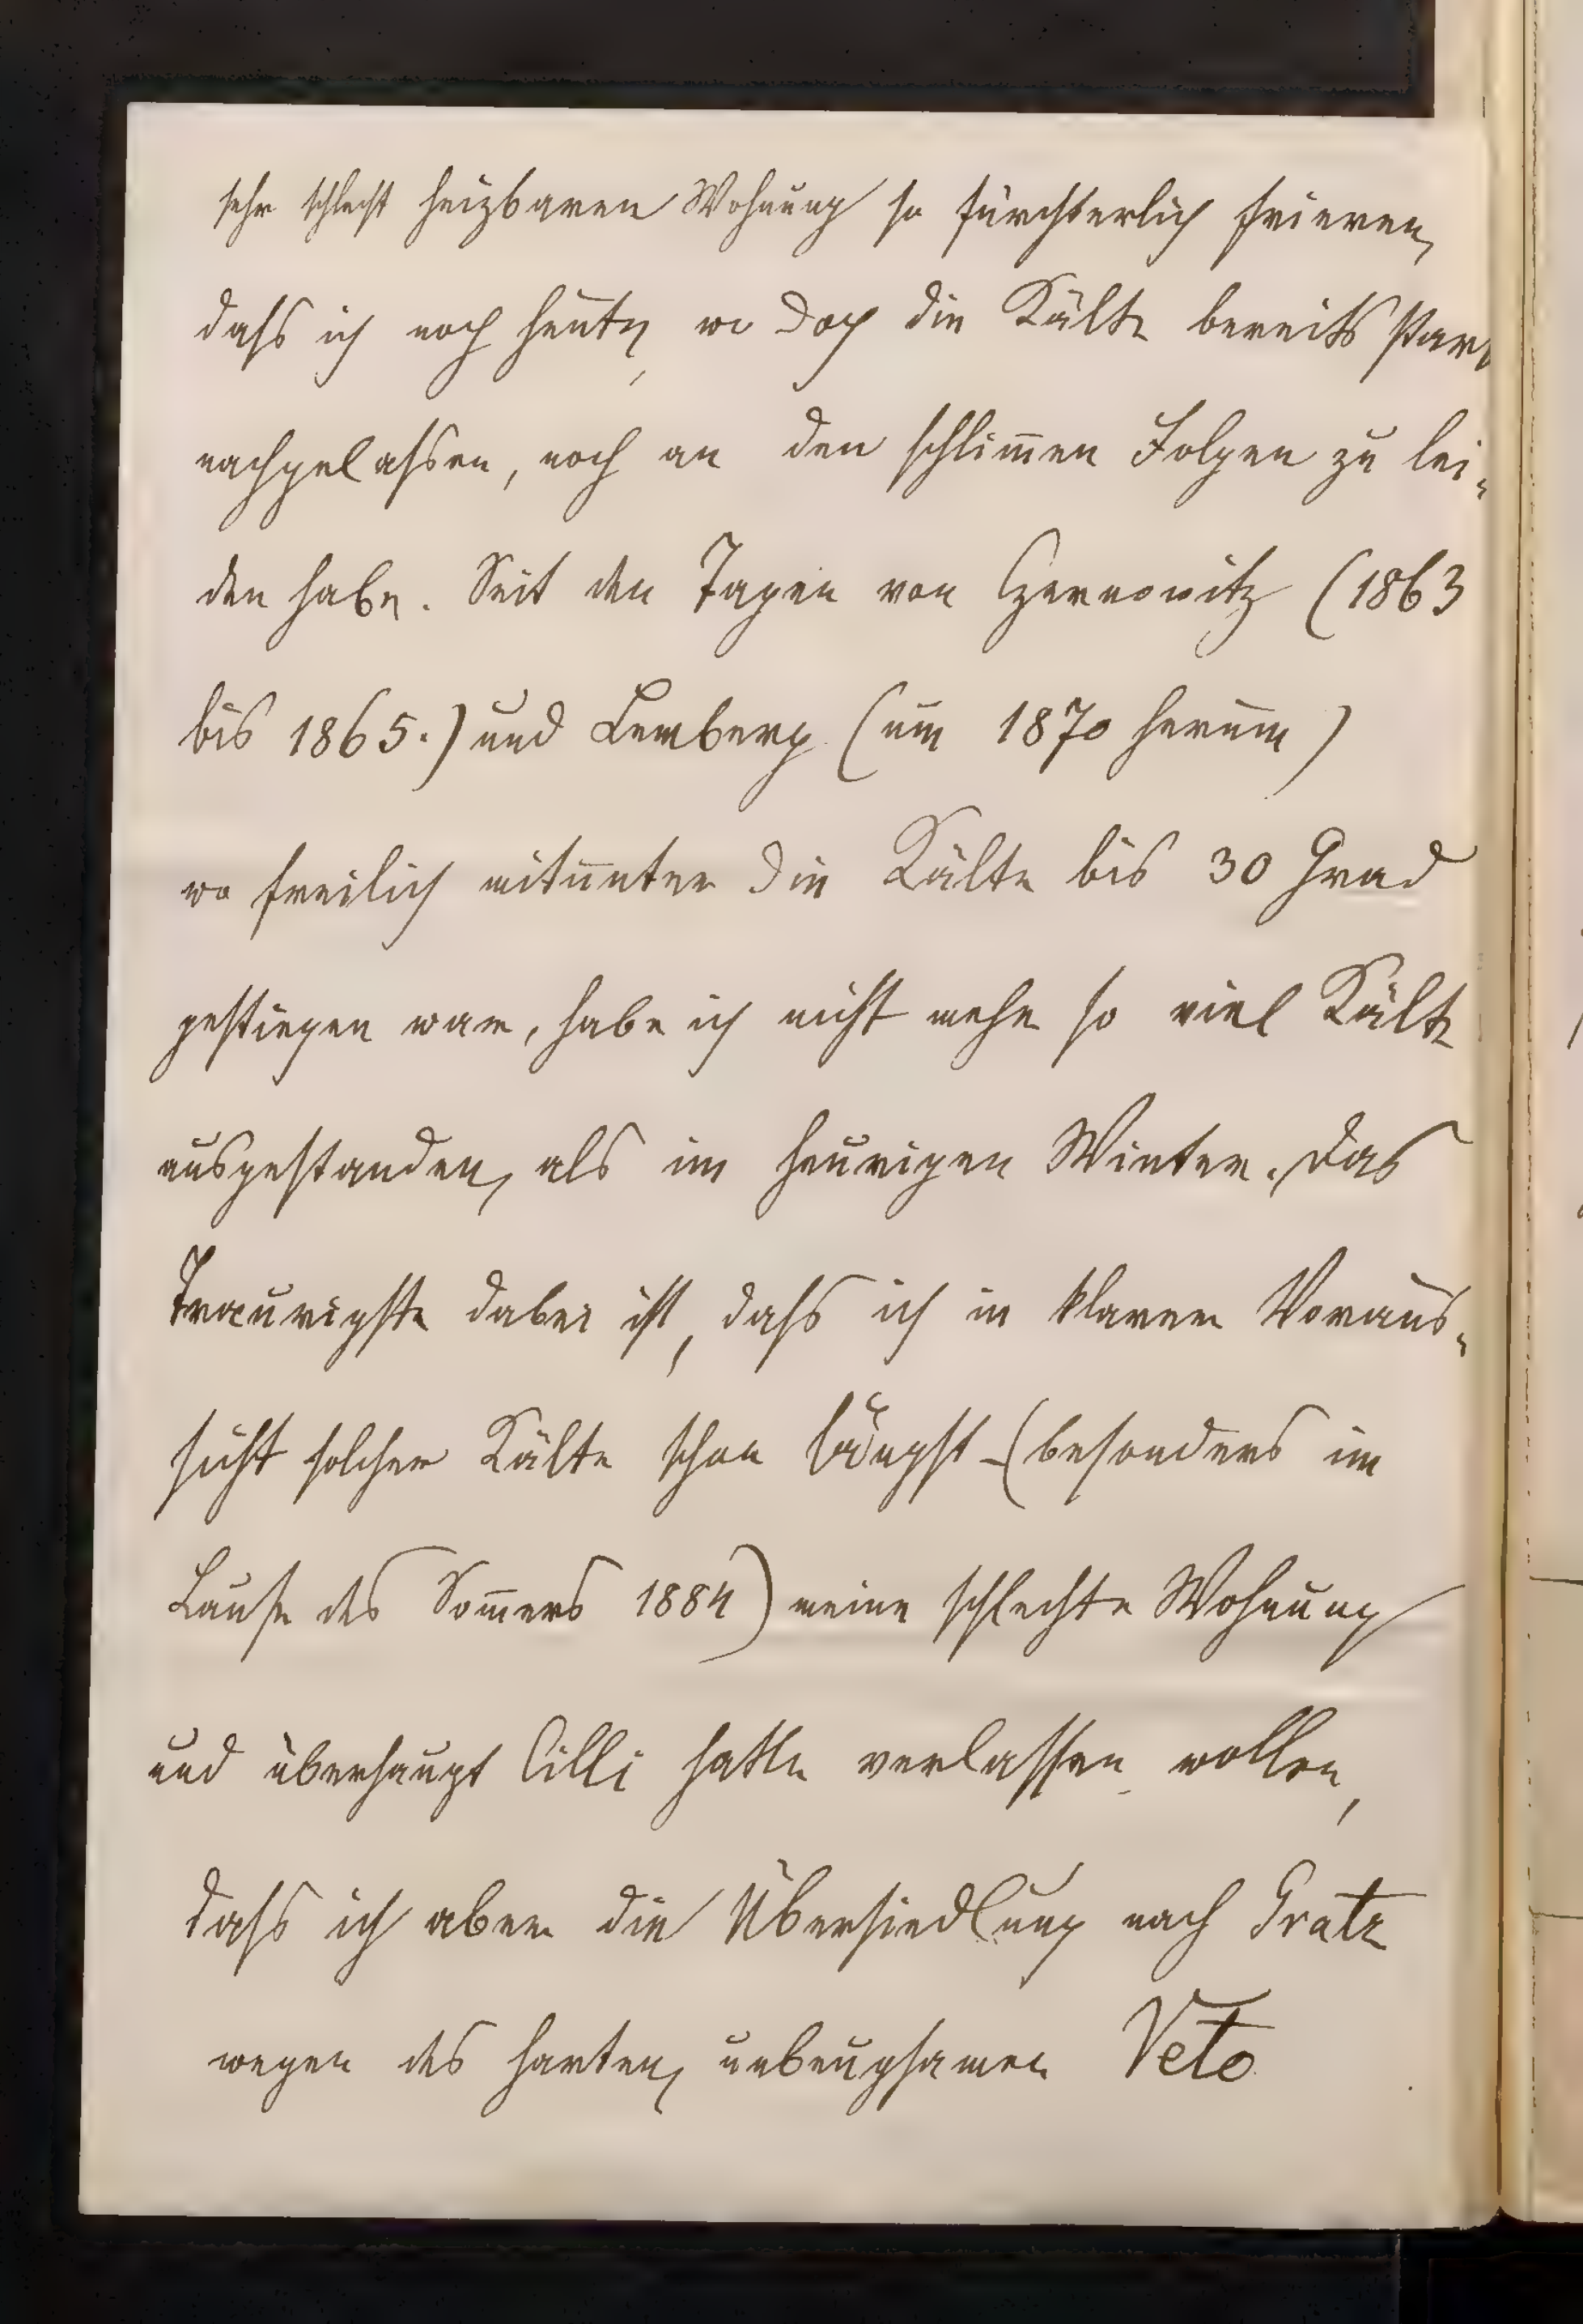 sehr schlecht heizbaren Wohnung so fürchterlich frieren,
daſs ich noch heute, wo doch die Kälte bereits stark
nachgelaſsen, noch an den schlim̄en Folgen zu lei-
den habe. Seit den Tagen von Czernowitz (1863
bis 1865.) und Lemberg (um 1870 herum)
wo freilich mitunter die Kälte bis 30 Grad
gestiegen war, habe ich nicht mehr so viel Kälte
ausgestanden, als im heurigen Winter. Das
Traurigste dabei ist, daſs ich in klarer Voraus-
sicht solcher Kälte schon längst (besonders im
Laufe des Som̄ers 1884) meine schlechte Wohnung
und überhaupt Cilli hatte verlassen wollen,
daſs ich aber die Übersiedlung nach Gratz
wegen des harten, unbeugsamen Veto